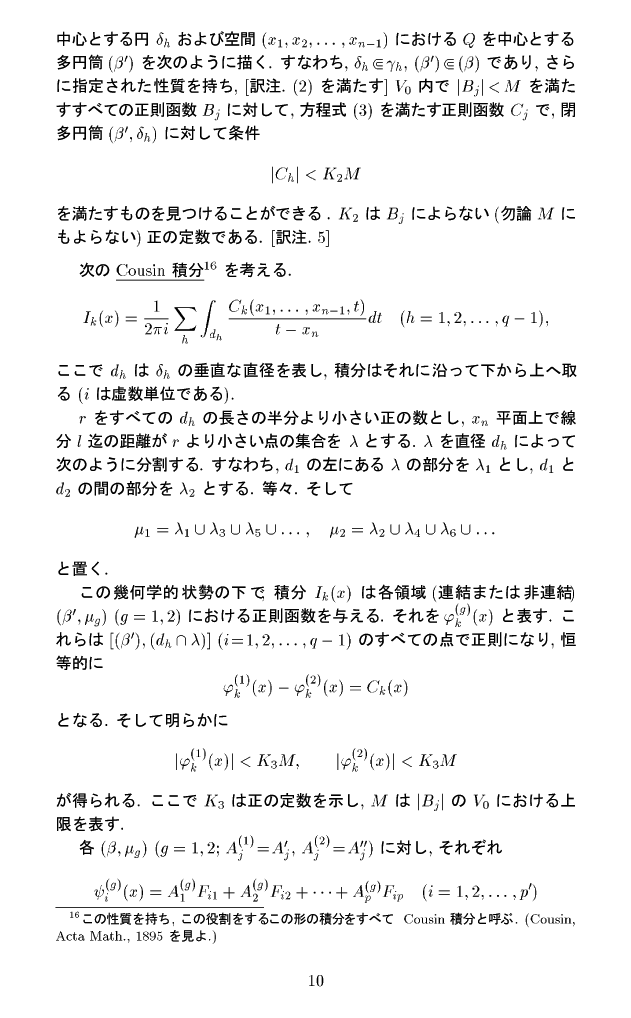 中心とする円 δ_h および空間 (x_1, x_2, . . . , x_{n−1}) における Q を中心とする
多円筒 (β′) を次のように描く. すなわち, δ_h ⋐ γ_h, (β′) ⋐ (β) であり, さら
に指定された性質を持ち, [訳注. (2) を満たす] V_0 内で |B_j| < M を満た
すすべての正則函数 B_j に対して, 方程式 (3) を満たす正則函数 C_j で, 閉
多円筒 (β′, δ_h) に対して条件
|C_h| < K_2M
を満たすものを見つけることができる . K_2 は B_j によらない (勿論 M に
もよらない) 正の定数である. [訳注. 5]
次の Cousin 積分^{16} を考える.
I_k(x) = \frac{1}{2πi} \sum_h \int_{d_h} \frac{C_k(x_1, . . . , x_{n−1}, t)}{t − x_n} dt (h = 1, 2, . . . , q − 1),
ここで d_h は δ_h の垂直な直径を表し, 積分はそれに沿って下から上へ取
る (i は虚数単位である).
r をすべての d_h の長さの半分より小さい正の数とし, x_n 平面上で線
分 l 迄の距離が r より小さい点の集合を λ とする. λ を直径 d_h によって
次のように分割する. すなわち, d_1 の左にある λ の部分を λ_1 とし, d_1 と
d_2 の間の部分を λ_2 とする. 等々. そして
μ_1 = λ_1 ∪ λ_3 ∪ λ_5 ∪ . . . , μ_2 = λ_2 ∪ λ_4 ∪ λ_6 ∪ . . .
と置く.
この幾何学的状勢の下で, 積分 I_k(x) は各領域 (連結または非連結)
(β′, μ_g) (g = 1, 2) における正則函数を与える. それを φ_k^{(g)}(x) と表す. こ
れらは [(β′), (d_h ∩ λ)] (i = 1, 2, . . . , q − 1) のすべての点で正則になり, 恒
等的に
φ_k^{(1)}(x) − φ_k^{(2)}(x) = C_k(x)
となる. そして明らかに
|φ_k^{(1)}(x)| < K_3M, |φ_k^{(2)}(x)| < K_3M
が得られる. ここで K_3 は正の定数を示し, M は |B_j| の V_0 における上
限を表す.
各 (β, μ_g) (g = 1, 2; A_j^{(1)} = A′_j, A_j^{(2)} = A″_j) に対し, それぞれ
ψ_i^{(g)}(x) = A_1^{(g)}F_{i1} + A_2^{(g)}F_{i2} + · · · + A_p^{(g)}F_{ip} (i = 1, 2, . . . , p′)
^{16}この性質を持ち, この役割をするこの形の積分をすべて Cousin 積分と呼ぶ. (Cousin,
Acta Math., 1895 を見よ.)
10